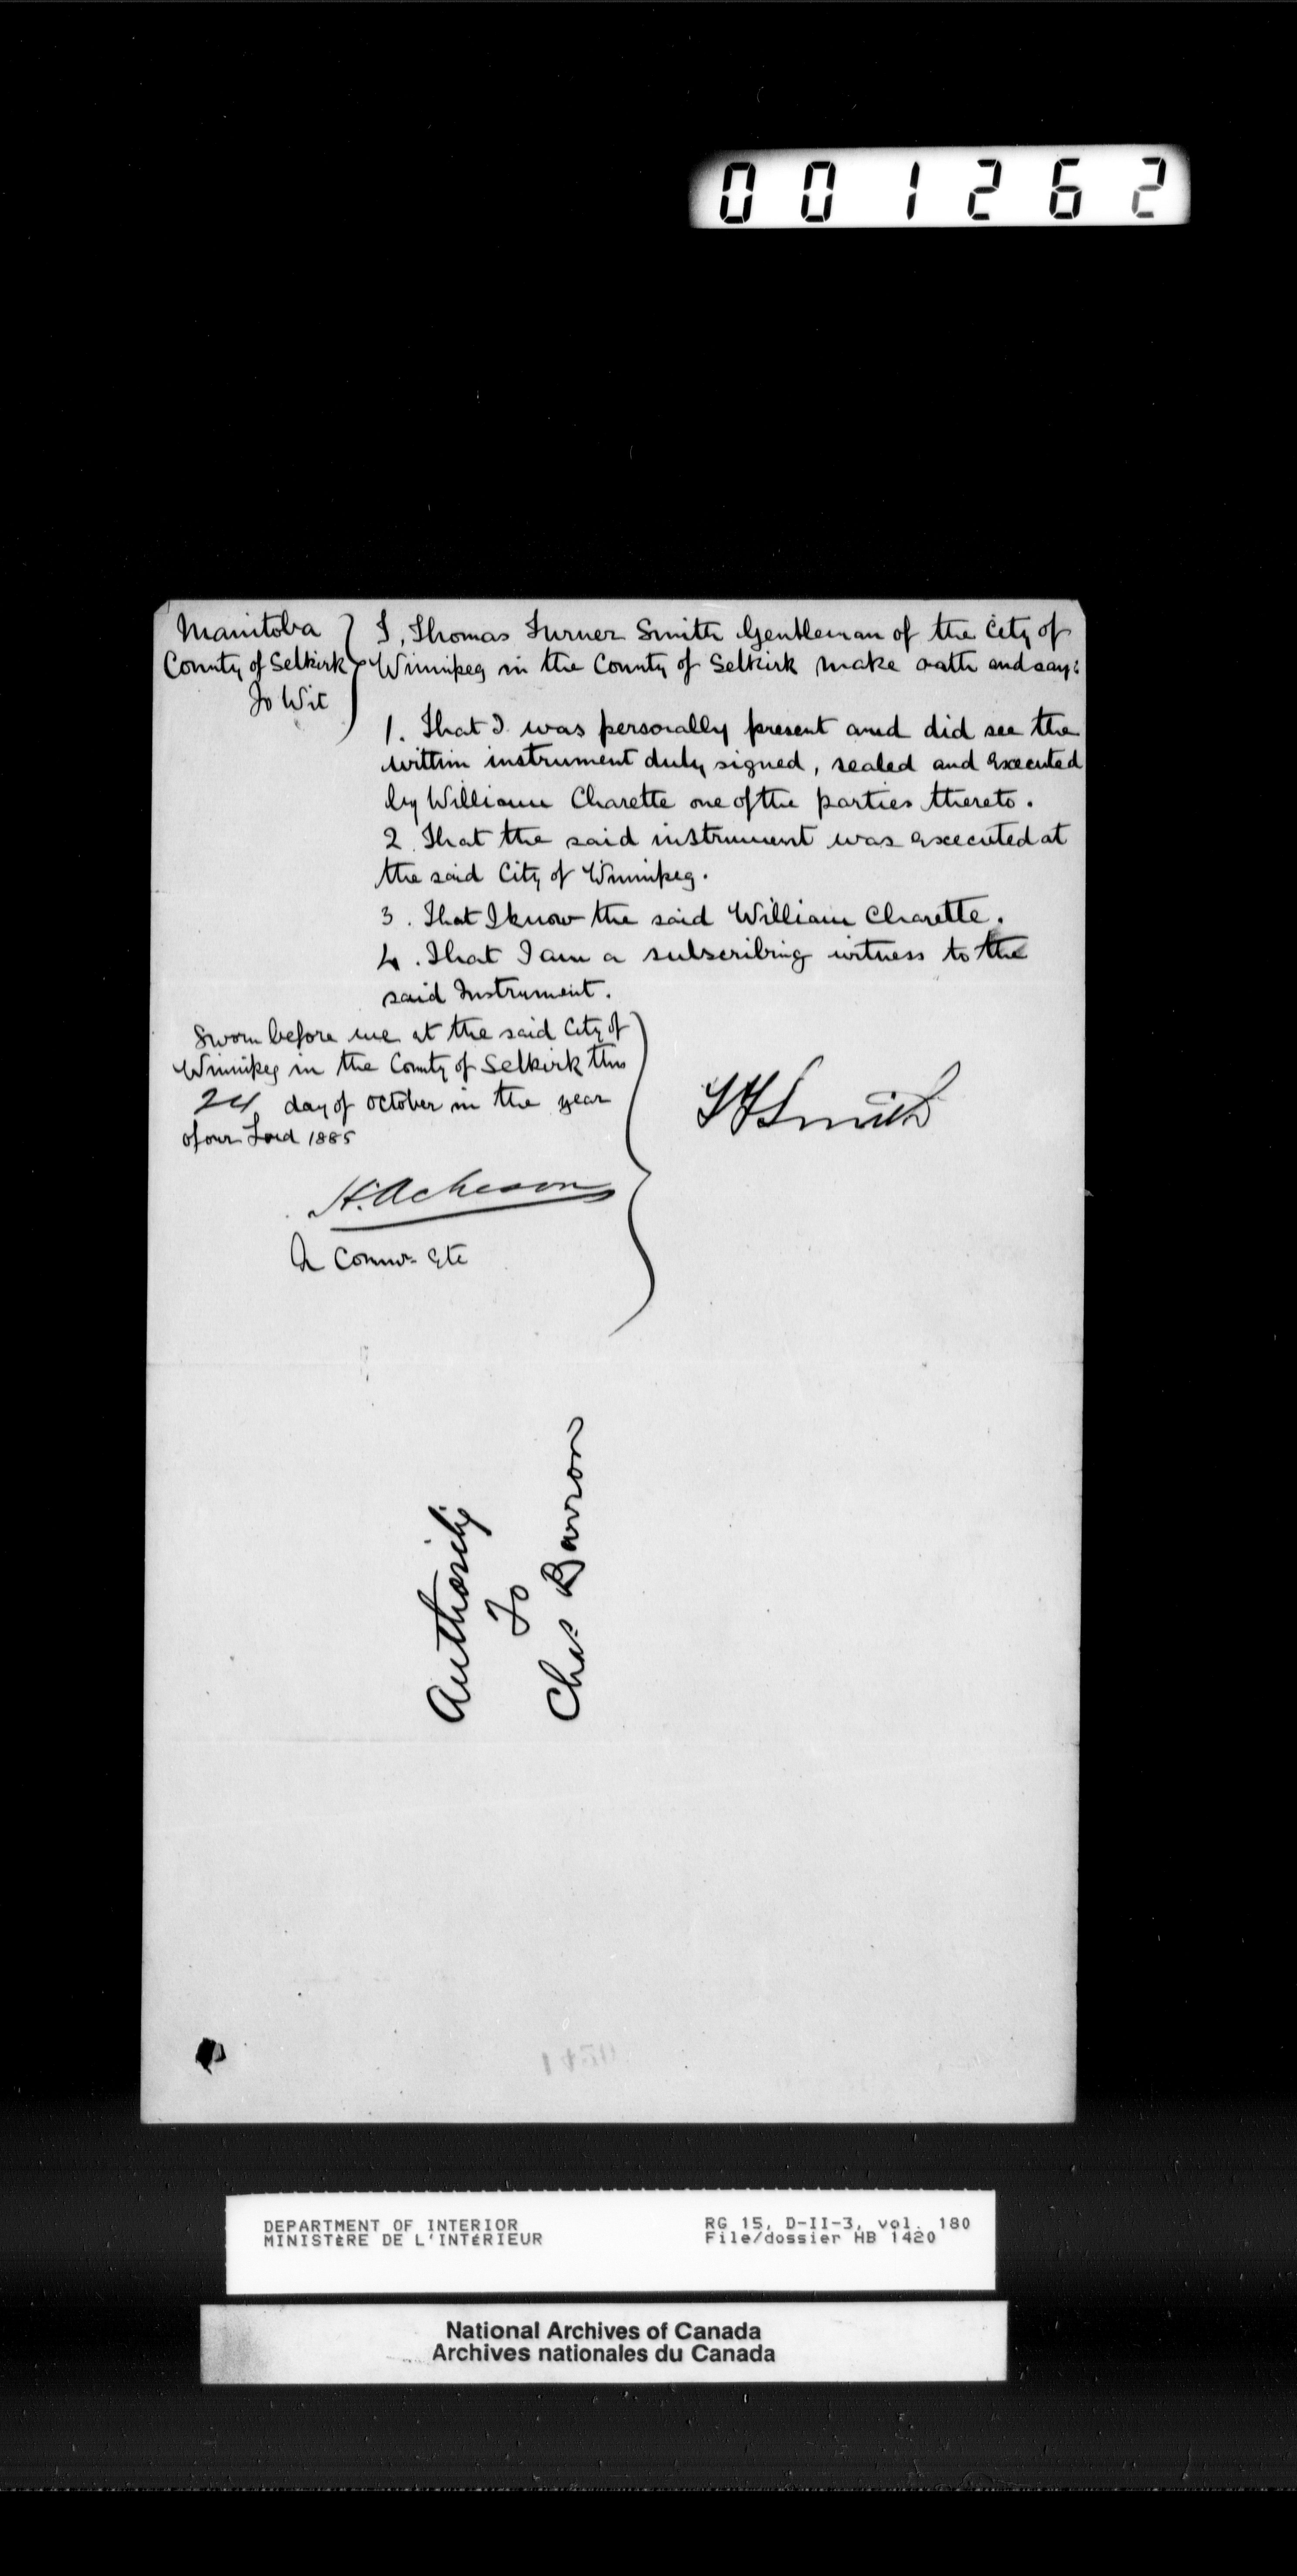 001262
Manitoba
County of Selkirk
To Wit
I, Thomas Turner Smith Gentleman of the City of
Winnipeg in the County of Selkirk make oath and say:
1. That I was personally present and did see the
within instrument duly signed, sealed and executed
by William Charette one of the parties thereto.
2. That the said instrument was executed at
the said City of Winnipeg.
3. That I know the said William Charette.
4. That I am a subscribing witness to the
said Instrument.
Sworn before me at the said City of
Winnipeg in the County of Selkirk this
24 day of October in the year
of our Lord 1885
T T Smith
H. Acheson
A Commr. Etc
Authority
To
Chas Barron
DEPARTMENT OF INTERIOR
MINISTÈRE DE L'INTÉRIEUR
RG 15, D-II-3, vol. 180
File/dossier HB 1420
National Archives of Canada
Archives nationales du Canada